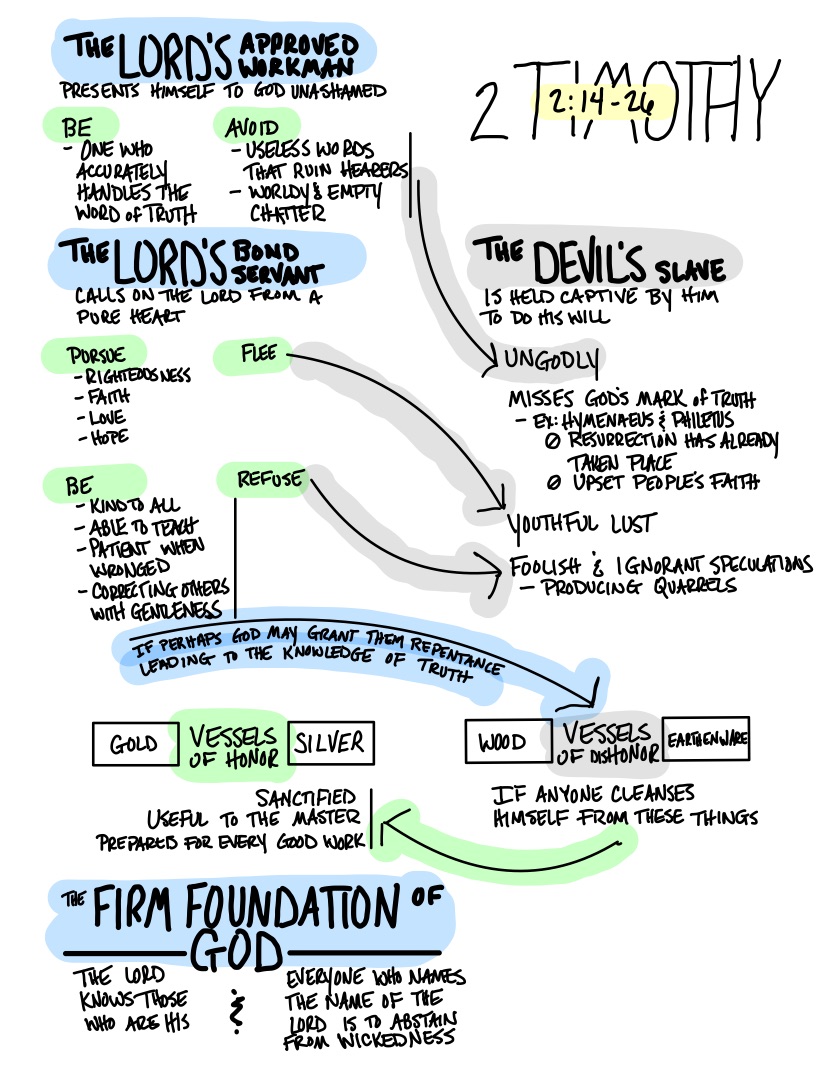 THE LORD'S APPROVED WORKMAN
PRESENTS HIMSELF TO GOD UNASHAMED
2 TIMOTHY
2:14-26
BE
- ONE WHO
ACCURATELY
HANDLES THE
WORD of TRUTH
AVOID
- USELESS WORDS
THAT RUIN HEARERS
- WORLDY & EMPTY
CHATTER
THE LORD'S BOND SERVANT
CALLS ON THE LORD FROM A
PURE HEART
THE DEVIL'S SLAVE
IS HELD CAPTIVE BY HIM
TO DO HIS WILL
PURSUE
- RIGHTEOUSNESS
- FAITH
- LOVE
- HOPE
FLEE
UNGODLY
MISSES GOD'S MARK of TRUTH
- EX: HYMENAEUS & PHILETUS
Ø RESURRECTION HAS ALREADY
TAKEN PLACE
Ø UPSET PEOPLE'S FAITH
BE
- KIND TO ALL
- ABLE TO TEACH
- PATIENT WHEN
WRONGED
- CORRECTING OTHERS
WITH GENTLENESS
REFUSE
YOUTHFUL LUST
FOOLISH & IGNORANT SPECULATIONS
- PRODUCING QUARRELS
IF PERHAPS GOD MAY GRANT THEM REPENTANCE
LEADING TO THE KNOWLEDGE OF TRUTH
GOLD
VESSELS
OF HONOR
SILVER
WOOD
VESSELS
OF DISHONOR
EARTHENWARE
SANCTIFIED
USEFUL TO THE MASTER
PREPARED FOR EVERY GOOD WORK
IF ANYONE CLEANSES
HIMSELF FROM THESE THINGS
THE FIRM FOUNDATION OF
GOD
THE LORD
KNOWS THOSE
WHO ARE HIS
&
EVERYONE WHO NAMES
THE NAME OF THE
LORD IS TO ABSTAIN
FROM WICKEDNESS